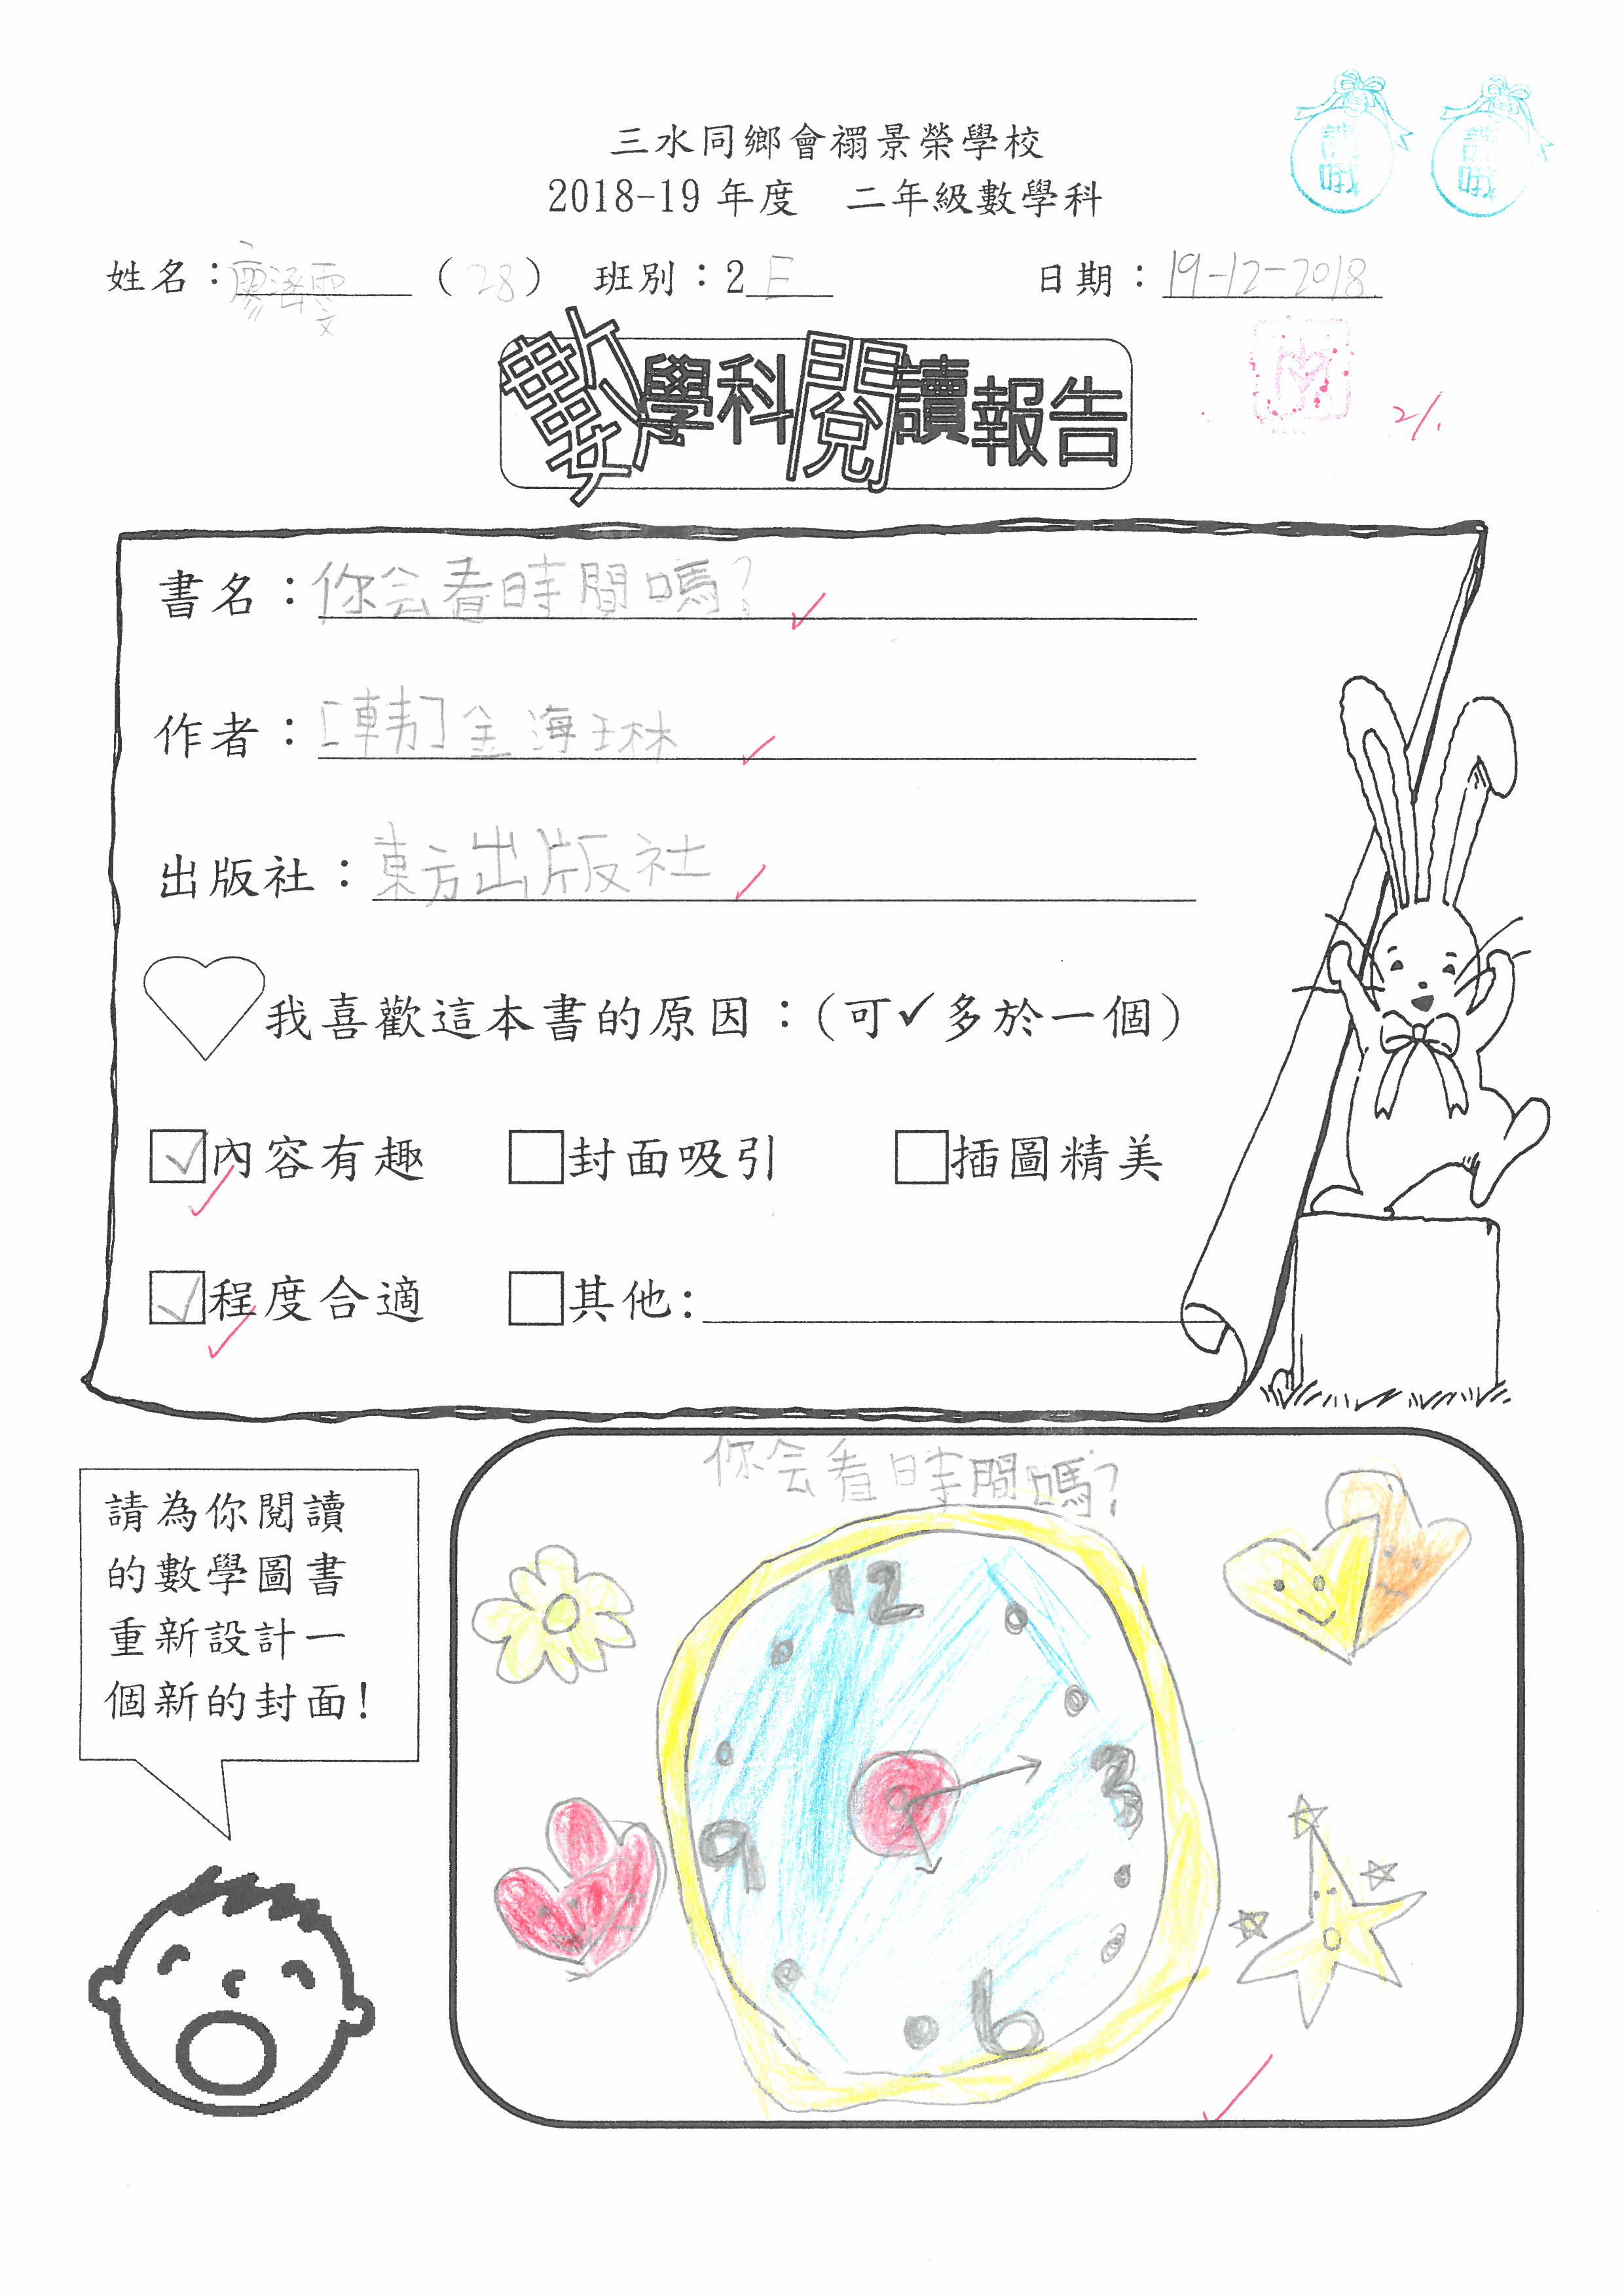 三水同鄉會禤景榮學校
2018-19 年度 二年級數學科
姓名：廖 雯 (28) 班別：2 E 日期：19-12-2018
數學科閱讀報告
2/.
書名：你会看時間嗎?
作者：[韩]金海琳
出版社：東方出版社
我喜歡這本書的原因：(可✓多於一個)
✓內容有趣 □封面吸引 □插圖精美
✓程度合適 □其他:
你会看時間嗎?
請為你閱讀
的數學圖書
重新設計一
個新的封面!
12
3
9
6